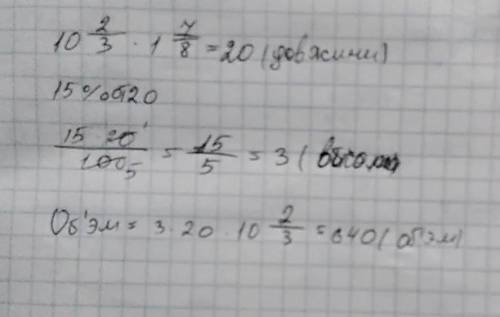 10 2/3 · 1 7/8 = 20 (довжини)
15% об 20
15 20¹/100₅ = 15/5 = 3 (висота
Об'эм = 3 · 20 · 10 2/3 = 640 (об'эм)